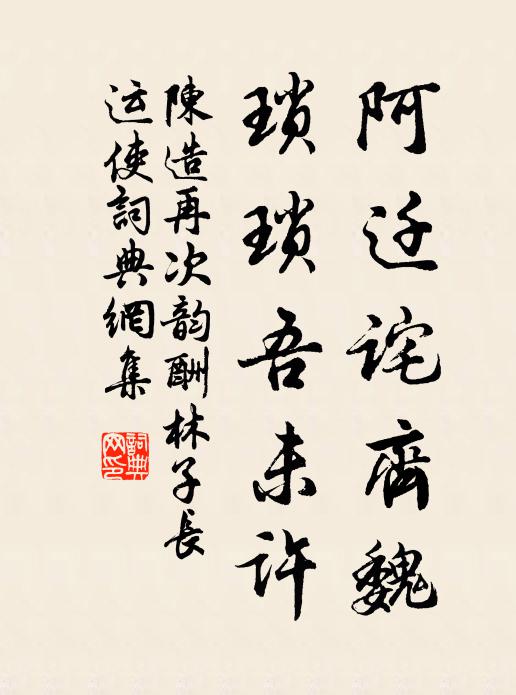 阿迁诧齊魏
瑣瑣吾未许
陳造再次韵酬林子長
运使詞典網集
詞典网印